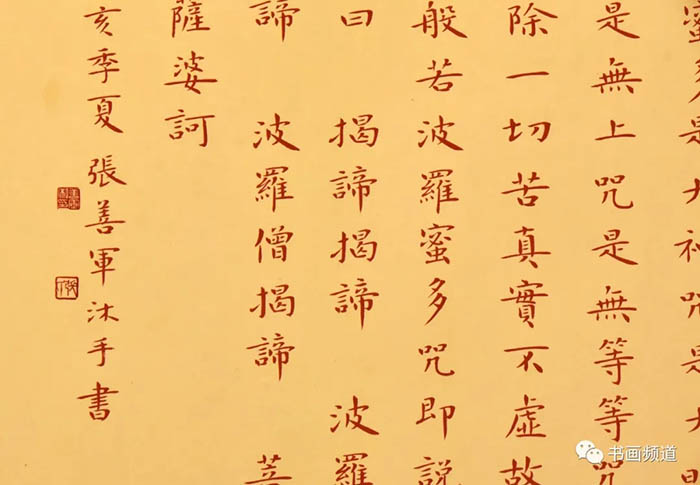 蜜多是大神咒是大
是無上咒是無等等咒
除一切苦真實不虛故
般若波羅蜜多咒即説
曰 揭諦揭諦 波羅
諦 波羅僧揭諦 菩
薩婆訶
亥季夏 張善軍沐手書
书画频道